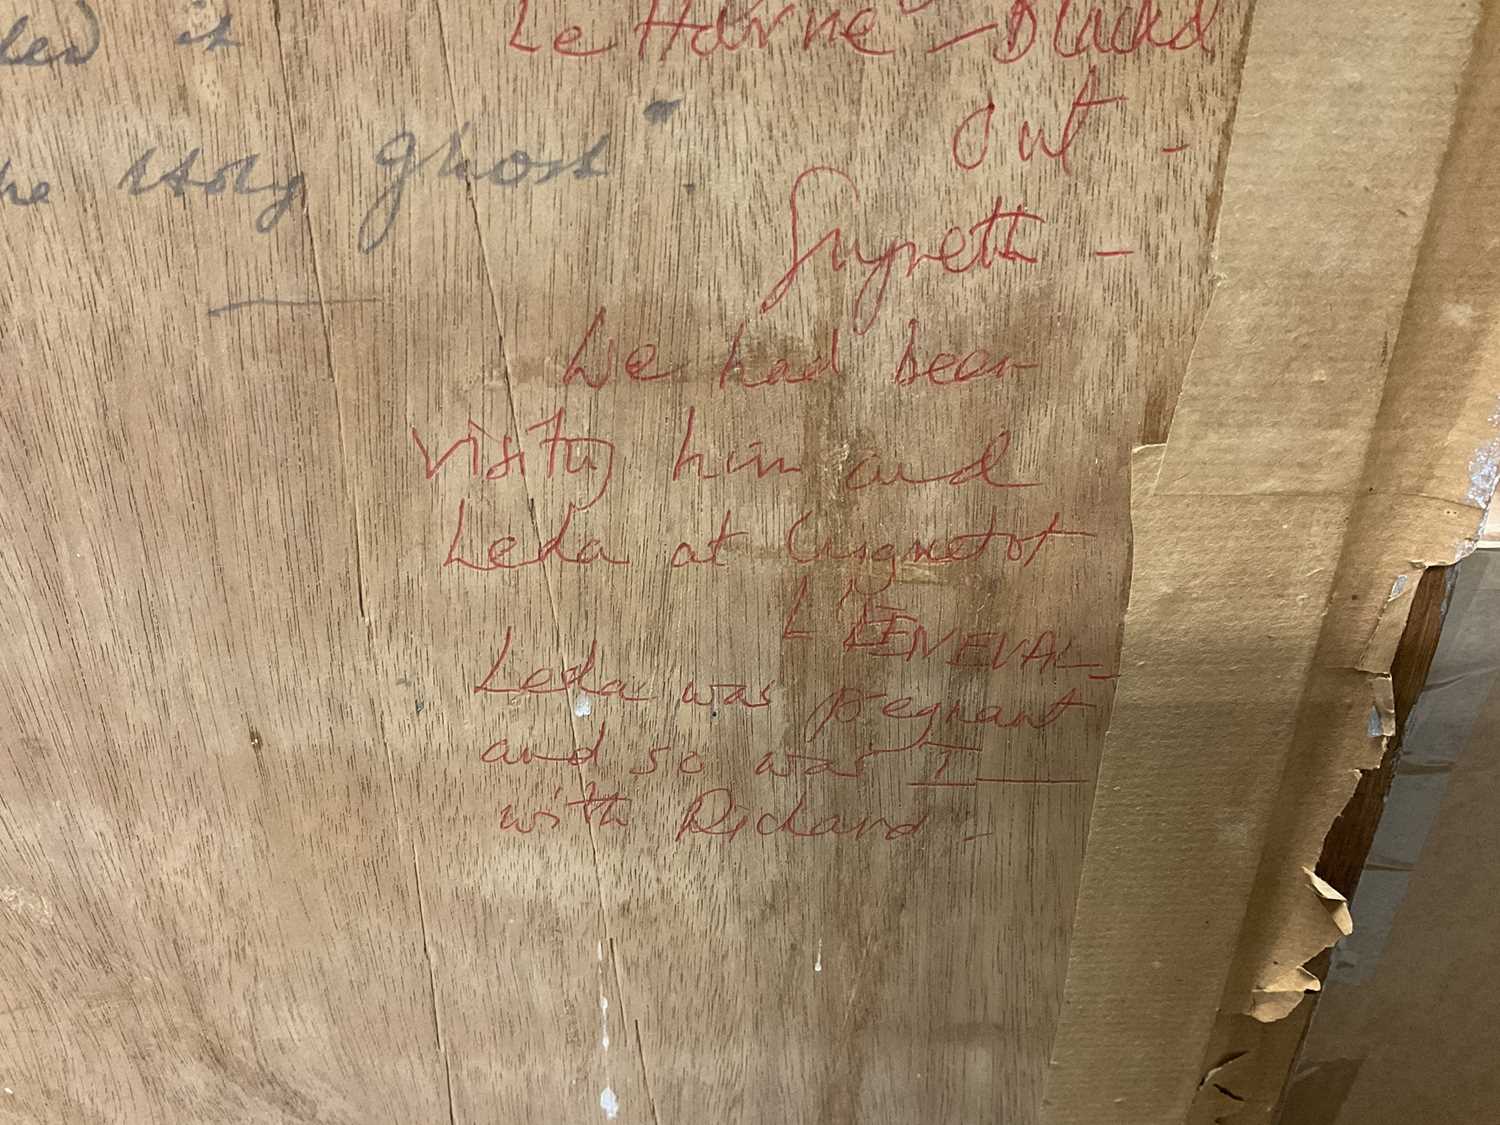 it
Holy Ghost".
Le Havre - Blackd
out -
We had been
visiting him and
Leda at Cuignetot
L'ENEVAL
Leda was pregnant
and so was I
with Richard -